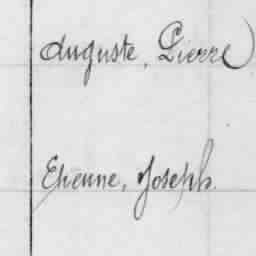 Auguste, Pierre
Etienne, Joseph.